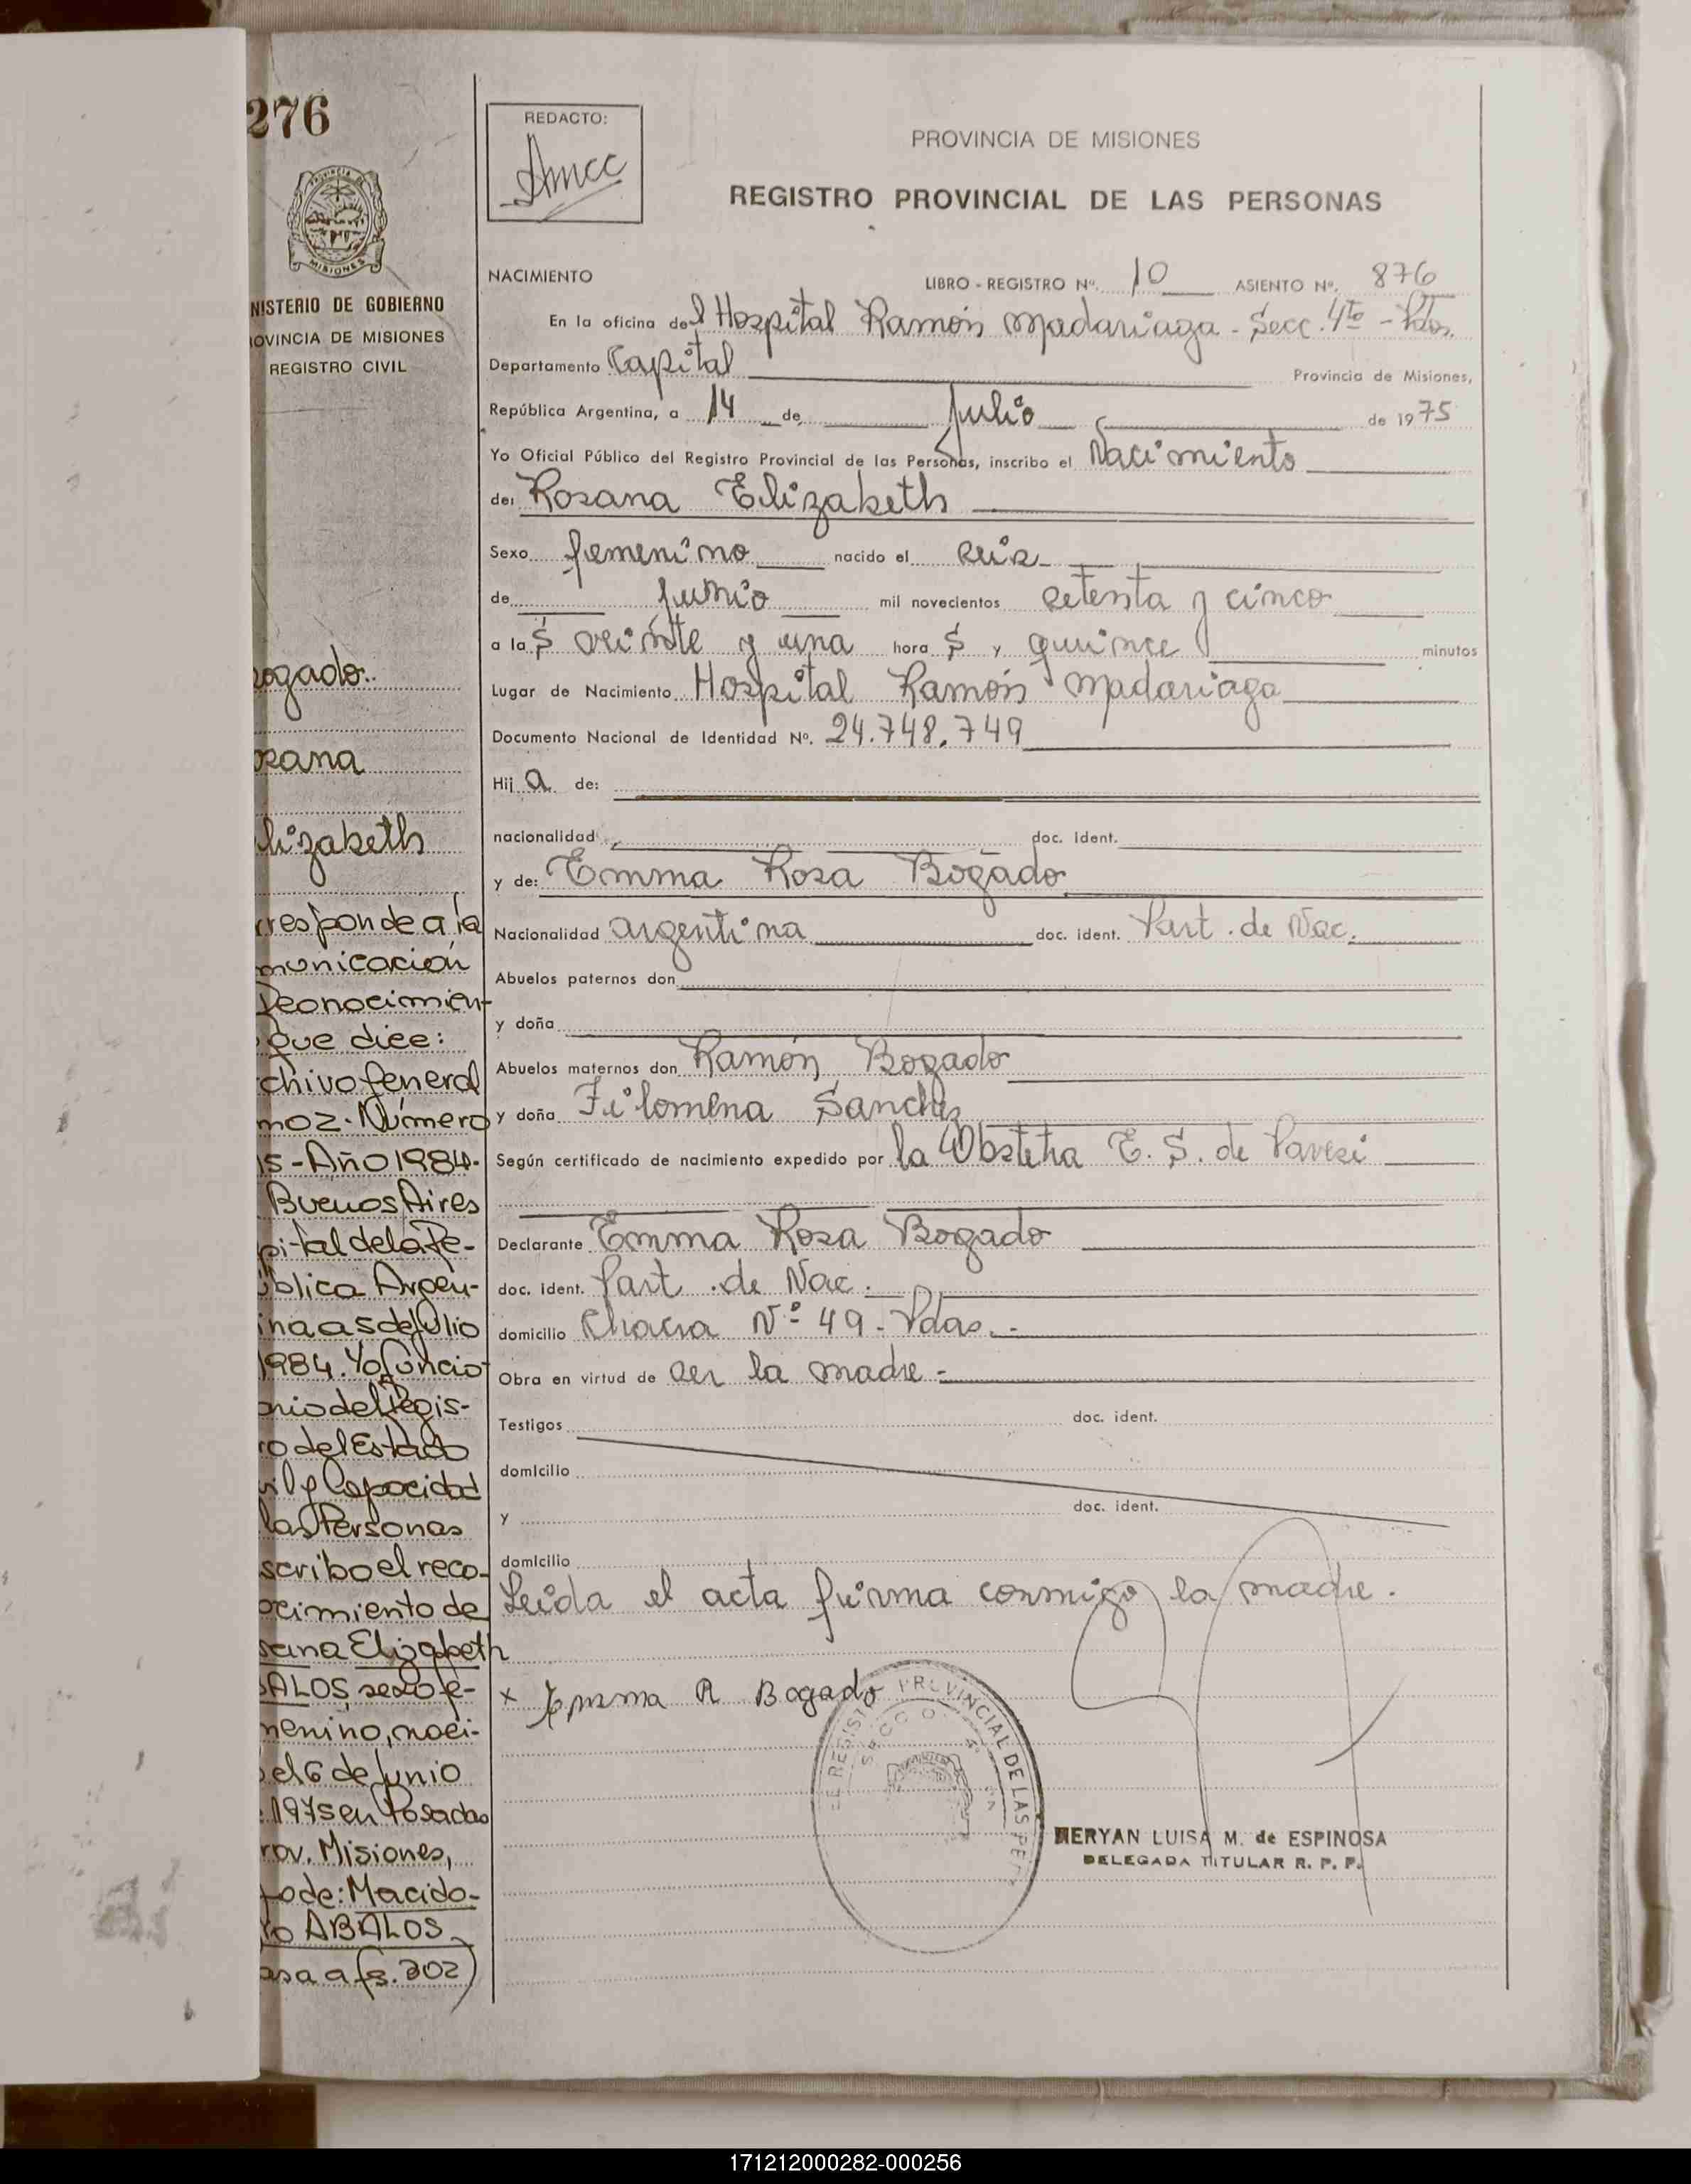 276
MISIONES
NISTERIO DE GOBIERNO
OVINCIA DE MISIONES
REGISTRO CIVIL
ogado.
osana
lizabeth
rresponde a la
municación
Reconocimien-
que dice:
chivo General
mo 2. Número
15 - Año 1984.
Buenos Aires
pital de la Re-
ública Argen-
ina a 5 de Julio
1984. Yo funcio-
ario del Regis-
ro del Estado
vil y Capacidad
las Personas
scribo el reco-
ocimiento de
sana Elizabeth
BALOS, sexo fe-
menino, naci-
el 6 de Junio
1975 en Posadas
rov. Misiones,
to de: Macido-
io ABALOS
asa a fs. 302)
REDACTO:
PROVINCIA DE MISIONES
REGISTRO PROVINCIAL DE LAS PERSONAS
NACIMIENTO LIBRO - REGISTRO Nº. 10 ASIENTO Nº. 876
En la oficina del Hospital Ramón Madariaga - Secc. 4ta - Pdas.
Departamento Capital Provincia de Misiones,
República Argentina, a 14 de Julio de 1975
Yo Oficial Público del Registro Provincial de las Personas, inscribo el Nacimiento
de: Rosana Elizabeth
Sexo femenino nacido el seis
de junio mil novecientos setenta y cinco
a las veinte y una horas y quince minutos
Lugar de Nacimiento Hospital Ramón Madariaga
Documento Nacional de Identidad Nº. 24.748.749
Hij a de:
nacionalidad doc. ident.
y de: Emma Rosa Bogado
Nacionalidad argentina doc. ident. Part. de Nac.
Abuelos paternos don
y doña
Abuelos maternos don Ramón Bogado
y doña Filomena Sanchez
Según certificado de nacimiento expedido por la Obstetra E. S. de Pavesi
Declarante Emma Rosa Bogado
doc. ident. Part. de Nac.
domicilio Chacra Nº 49 - Pdas. -
Obra en virtud de ser la madre -
Testigos doc. ident.
domicilio
y doc. ident.
domicilio
Leída el acta firma conmigo la madre.
x Emma R Bogado
REGISTRO PROVINCIAL DE LAS PER
MERYAN LUISA M. de ESPINOSA
DELEGADA TITULAR R. P. P.
171212000282-000256